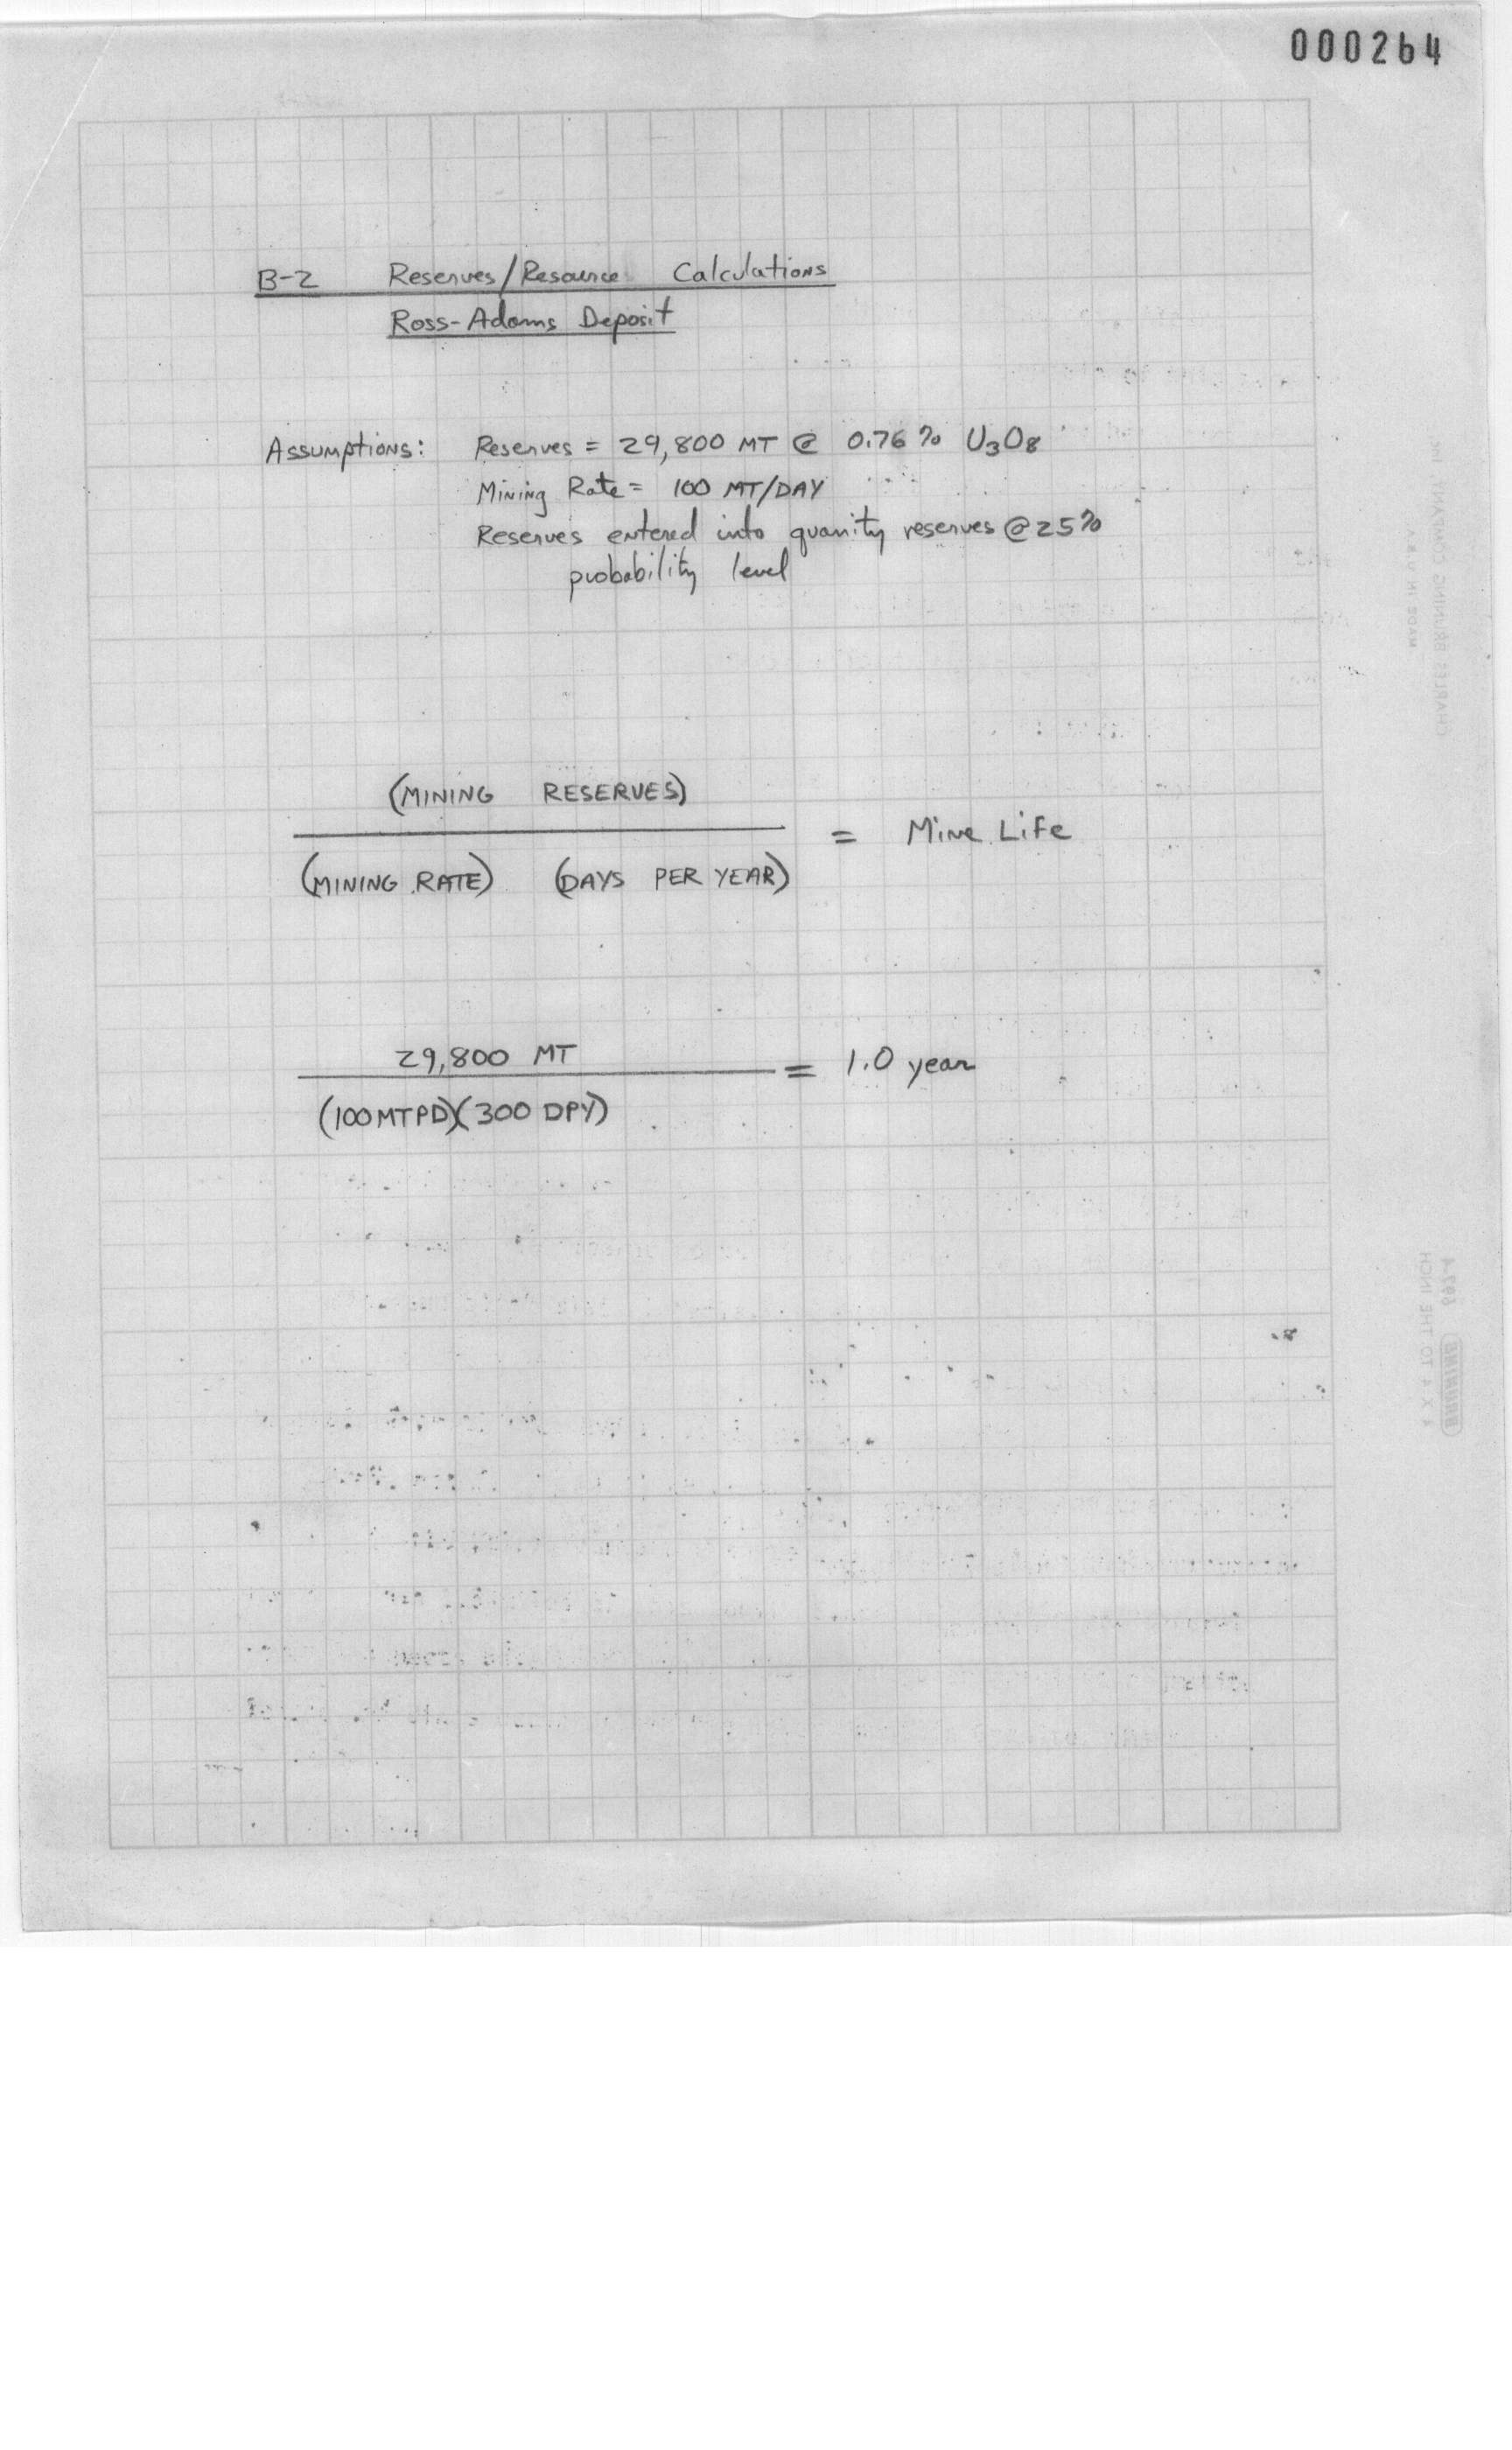 000264
B-2 Reserves/Resource Calculations
Ross-Adams Deposit
Assumptions: Reserves = 29,800 MT @ 0.76% U3O8
Mining Rate = 100 MT/DAY
Reserves entered into quanity reserves @ 25%
probability level
(MINING RESERVES)
= Mine Life
(MINING RATE) (DAYS PER YEAR)
29,800 MT
= 1.0 year
(100 MTPD)(300 DPY)
CHARLES BRUNING COMPANY, INC.
MADE IN U.S.A.
BRUNING
4 X 4 TO THE INCH